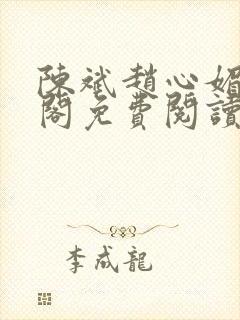 陳斌趙心媚
閣免費閱讀
李成龍